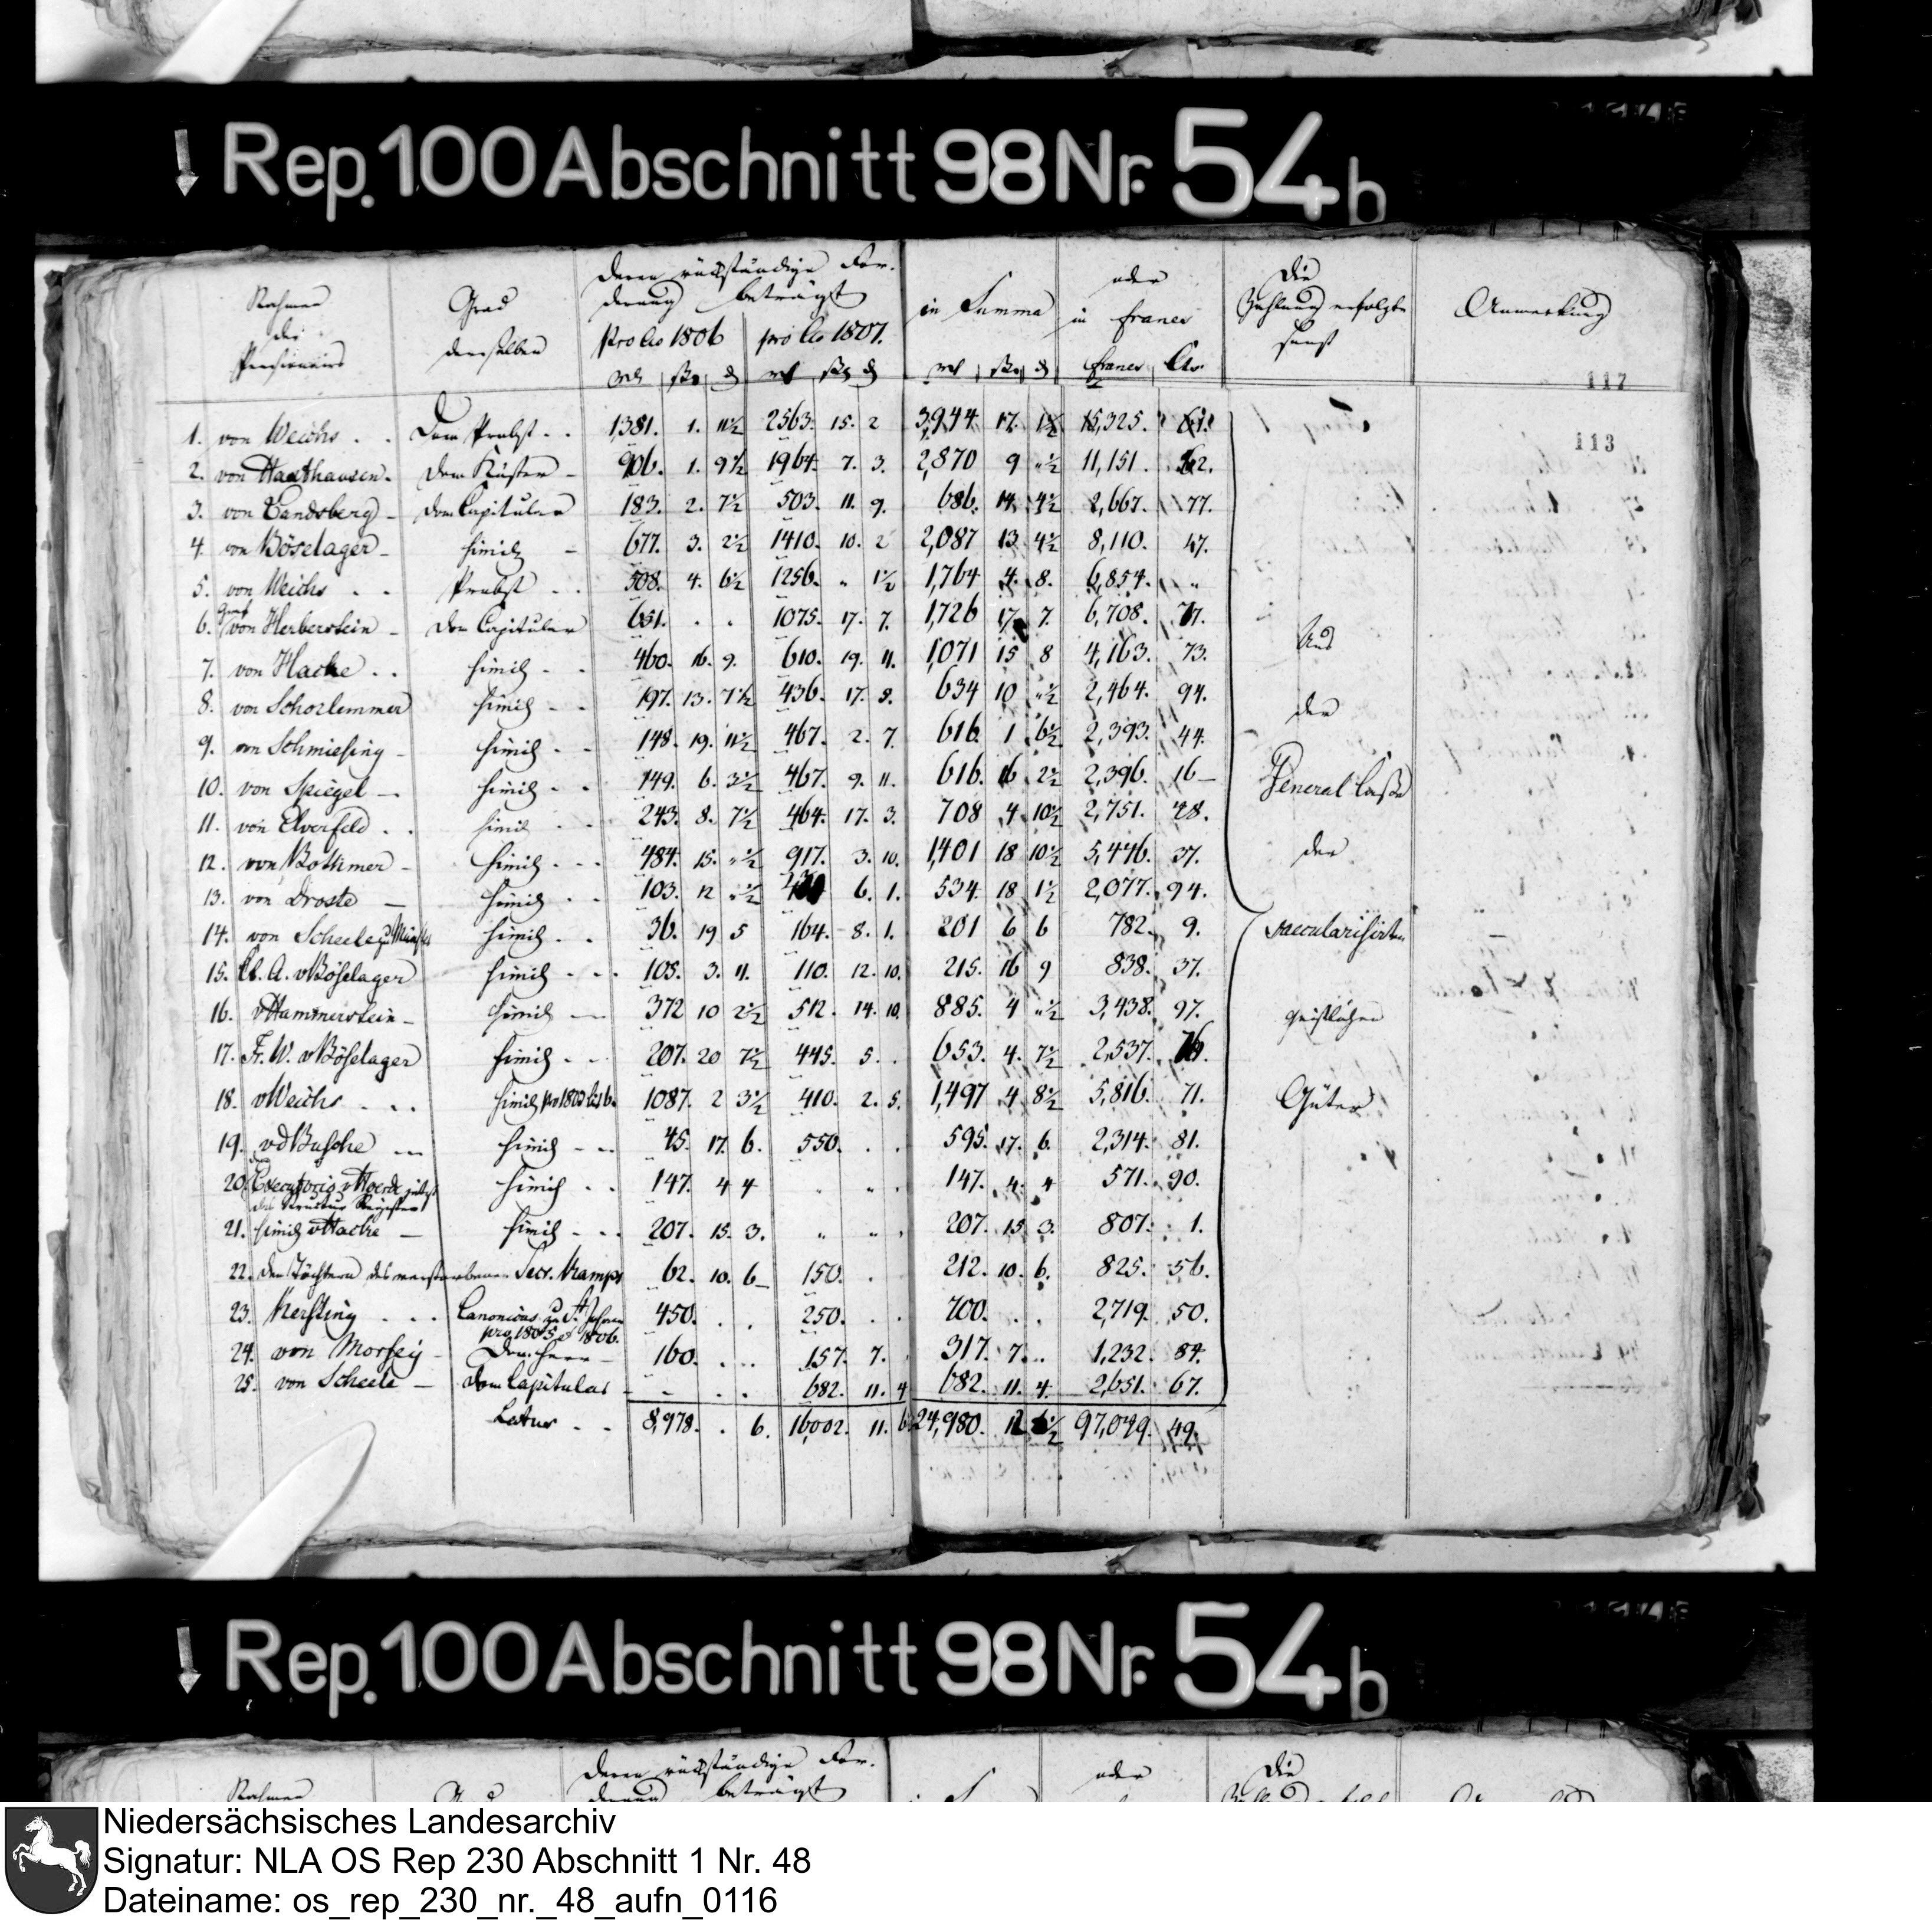 Rep. 100 Abschnitt 98 Nr. 54 b
Nahmen der Pensionairs
Grad derselben
deren rückständige For-
derung beträgt
pro Ao 1806 pro Ao 1807.
in Summa
oder in francs
francs Cts
Die Zahlung erfolgte sonst
Anmerkung
117
113
1. von Weichs . . Dom Probst . . 1381. 1. 11½ 2563. 15. 2 3,944 17. 1½ 15,325.
2. von Haxthausen. Dom Küster - 906. 1. 9½ 1964. 7. 3. 2,870 9 "½ 11,151. 62.
3. von Landsberg - Dom Capitular 183. 2. 7½ 503. 11. 9. 686. 14. 4½ 2,667. 77.
4. von Böselager - simil - 677. 3. 2½ 1410. 10. 2 2,087 13 4½ 8,110. 47.
5. von Weichs . . Probst . . 508. 4. 6½ 1256. " 1½ 1,764 4. 8. 6,854. "
6. Graf von Herberstein - Dom Capitular 651. . . 1075. 17. 7. 1,726 17 7. 6,708. 77.
7. von Hacke . . simil . . 460. 16. 9. 610. 19. 11. 1,071 15 8 4,163. 73.
8. von Schorlemmer simil . . 197. 13. 7½ 436. 17. 5. 634 10 "½ 2,464. 94.
9. von Schmiesing - simil . . 148. 19. 11½ 467. 2. 7. 616 1 6½ 2,393. 44.
10. von Spiegel - simil . . 149. 6. 3½ 467. 9. 11. 616. 16 2½ 2,396. 16 -
11. von Elverfeld . . simil . . 243. 8. 7½ 464. 17. 3. 708 4 10½ 2,751. 28.
12. von Bothmer - simil . . . 484. 15. "½ 917. 3. 10. 1,401 18 10½ 5,446. 37.
13. von Droste - simil . . 103. 12 "½ 6. 1. 534 18 1½ 2,077. 94.
14. von Scheele simil . . 36. 19 5 164. 8. 1. 201 6 6 782. 9.
15. Cl. A. v Böselager simil . . . 105. 3. 11. 110. 12. 10. 215. 16 9 838. 37.
16. v Hammerstein - simil - 372 10 2½ 512. 14. 10. 885. 4 "½ 3,438. 97.
17. Fr. W. v Böselager simil . . 207. 20 7½ 445. 5. . 653. 4. 7½ 2,537. 76.
18. v Weichs . . . simil 1087. 2 3½ 410. 2. 5. 1,497 4 8½ 5,816. 71.
19. v d Busche ... simil - .. 45. 17. 6. 550. . . 595. 17. 6. 2,314. 81.
20. simil . . 147. 4 4 . " . 147. 4. 4 571. 90.
21. simil v Hacke - simil - . . 207. 15. 3. " " . 207. 15 3. 807. 1.
22. den Töchtern des verstorbenen Secr. Kamps 62. 10. 6 - 150. . 212. 10. 6. 825. 56.
23. Kersting . . . Canonicus zu St Johann
pro 1805 et 1806. 450. . . 250. . . 700. . . 2,719. 50.
24. von Morsey - Dom Herr - 160. . .. 157. 7. . 317. 7. .. 1,232. 84.
25. von Scheele - Dom Capitular - - . . 682. 11. 4 682. 11. 4. 2,651. 67.
Latus . . 8,978. . 6. 16,002. 11. 6 24,980. 12 6½ 97,049. 49.
Aus
der
General Casse
der
saecularisirten
geistlichen
Güter
Rep. 100 Abschnitt 98 Nr. 54 b
deren rückständige For-
Nahmen derung beträgt oder Die
Niedersächsisches Landesarchiv
Signatur: NLA OS Rep 230 Abschnitt 1 Nr. 48
Dateiname: os_rep_230_nr._48_aufn_0116